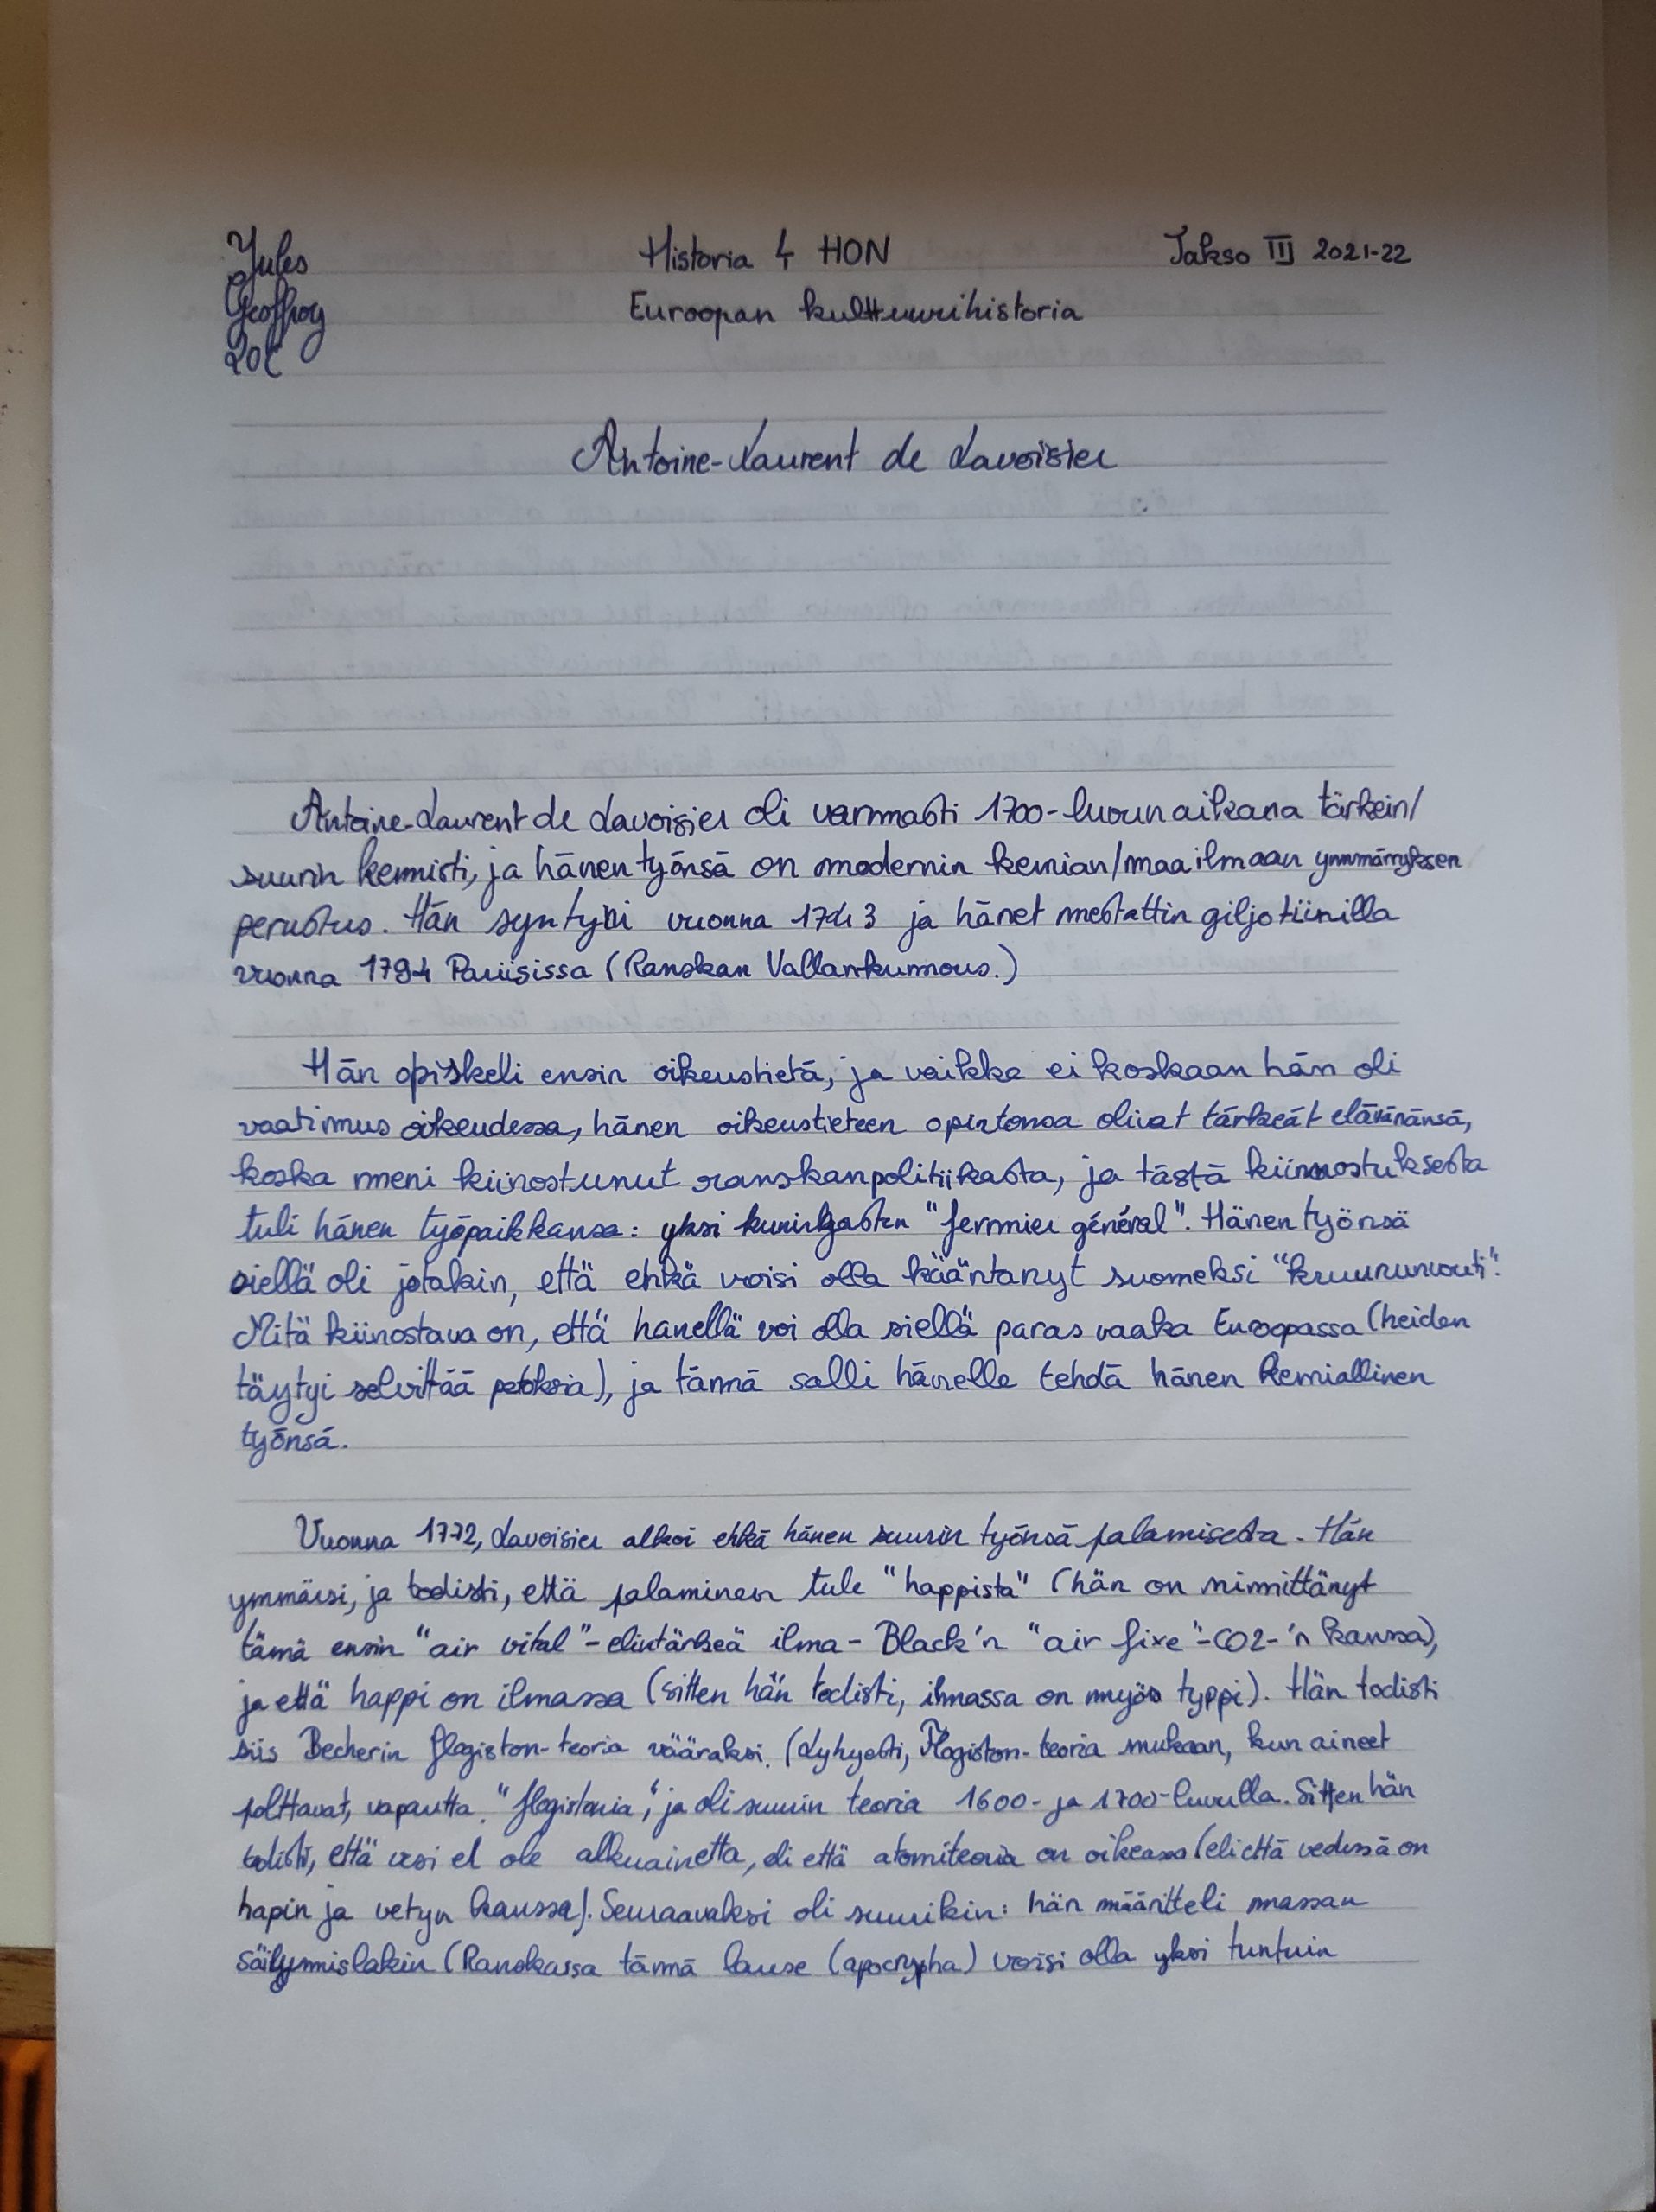 Jules
Geoffroy
20C
Historia 4 HON
Euroopan kulttuurihistoria
Jakso III 2021-22
Antoine-Laurent de Lavoisier
Antoine-Laurent de Lavoisier oli varmasti 1700-luvun aikana tärkein/
suurin kemisti, ja hänen työnsä on modernin kemian/maailmaan ymmärryksen
perustus. Hän syntyni vuonna 1743 ja hänet mestattin giljotiinilla
vuonna 1794 Pariisissa (Ranskan Vallankumous.)
Hän opiskeli ensin oikeustietä, ja vaikka ei koskaan hän oli
vaatimus oikeudessa, hänen oikeustieteen opintonsa olivat tärkeät elävänänsä,
koska meni kiinostunut ranskanpolitiikasta, ja tästä kiinnostuksesta
tuli hänen työpaikkansa: yksi kuninkgasten "fermier général". Hänen työnsä
siellä oli jotakin, että ehkä voisi olla kääntanyt suomeksi "kruununvouti".
Mitä kiinostava on, että hanellä voi olla siellä paras vaaka Euroopassa (heiden
täytyi selvittää petoksia), ja tämä salli hänelle tehdä hänen kemiallinen
työnsä.
Vuonna 1772, Lavoisier alkoi ehkä hänen suurin työnsä palamisesta. Hän
ymmärsi, ja todisti, että palaminen tule "happista" (hän on nimittänyt
tämä ensin "air vital"-elintärkeä ilma- Black'n "air fixe"-CO2-'n kanssa),
ja että happi on ilmassa (sitten hän todisti, ilmassa on myös typpi). Hän todisti
siis Becherin flogiston-teoria vääraksi. (Lyhyesti, Flogiston-teoria mukaan, kun aineet
polttavat, vapautta "flogistonia", ja oli suurin teoria 1600- ja 1700-luvulla. Sitten hän
todisti, että vesi ei ole alkuainetta, eli että atomiteoria on oikeassa (eli että vedessä on
hapin ja vetyn kanssa). Seuraavaksi oli suurikin: hän määritteli massan
säilymislakin (Ranskassa tämä lause (apocrypha) voisi olla yksi tuntuin